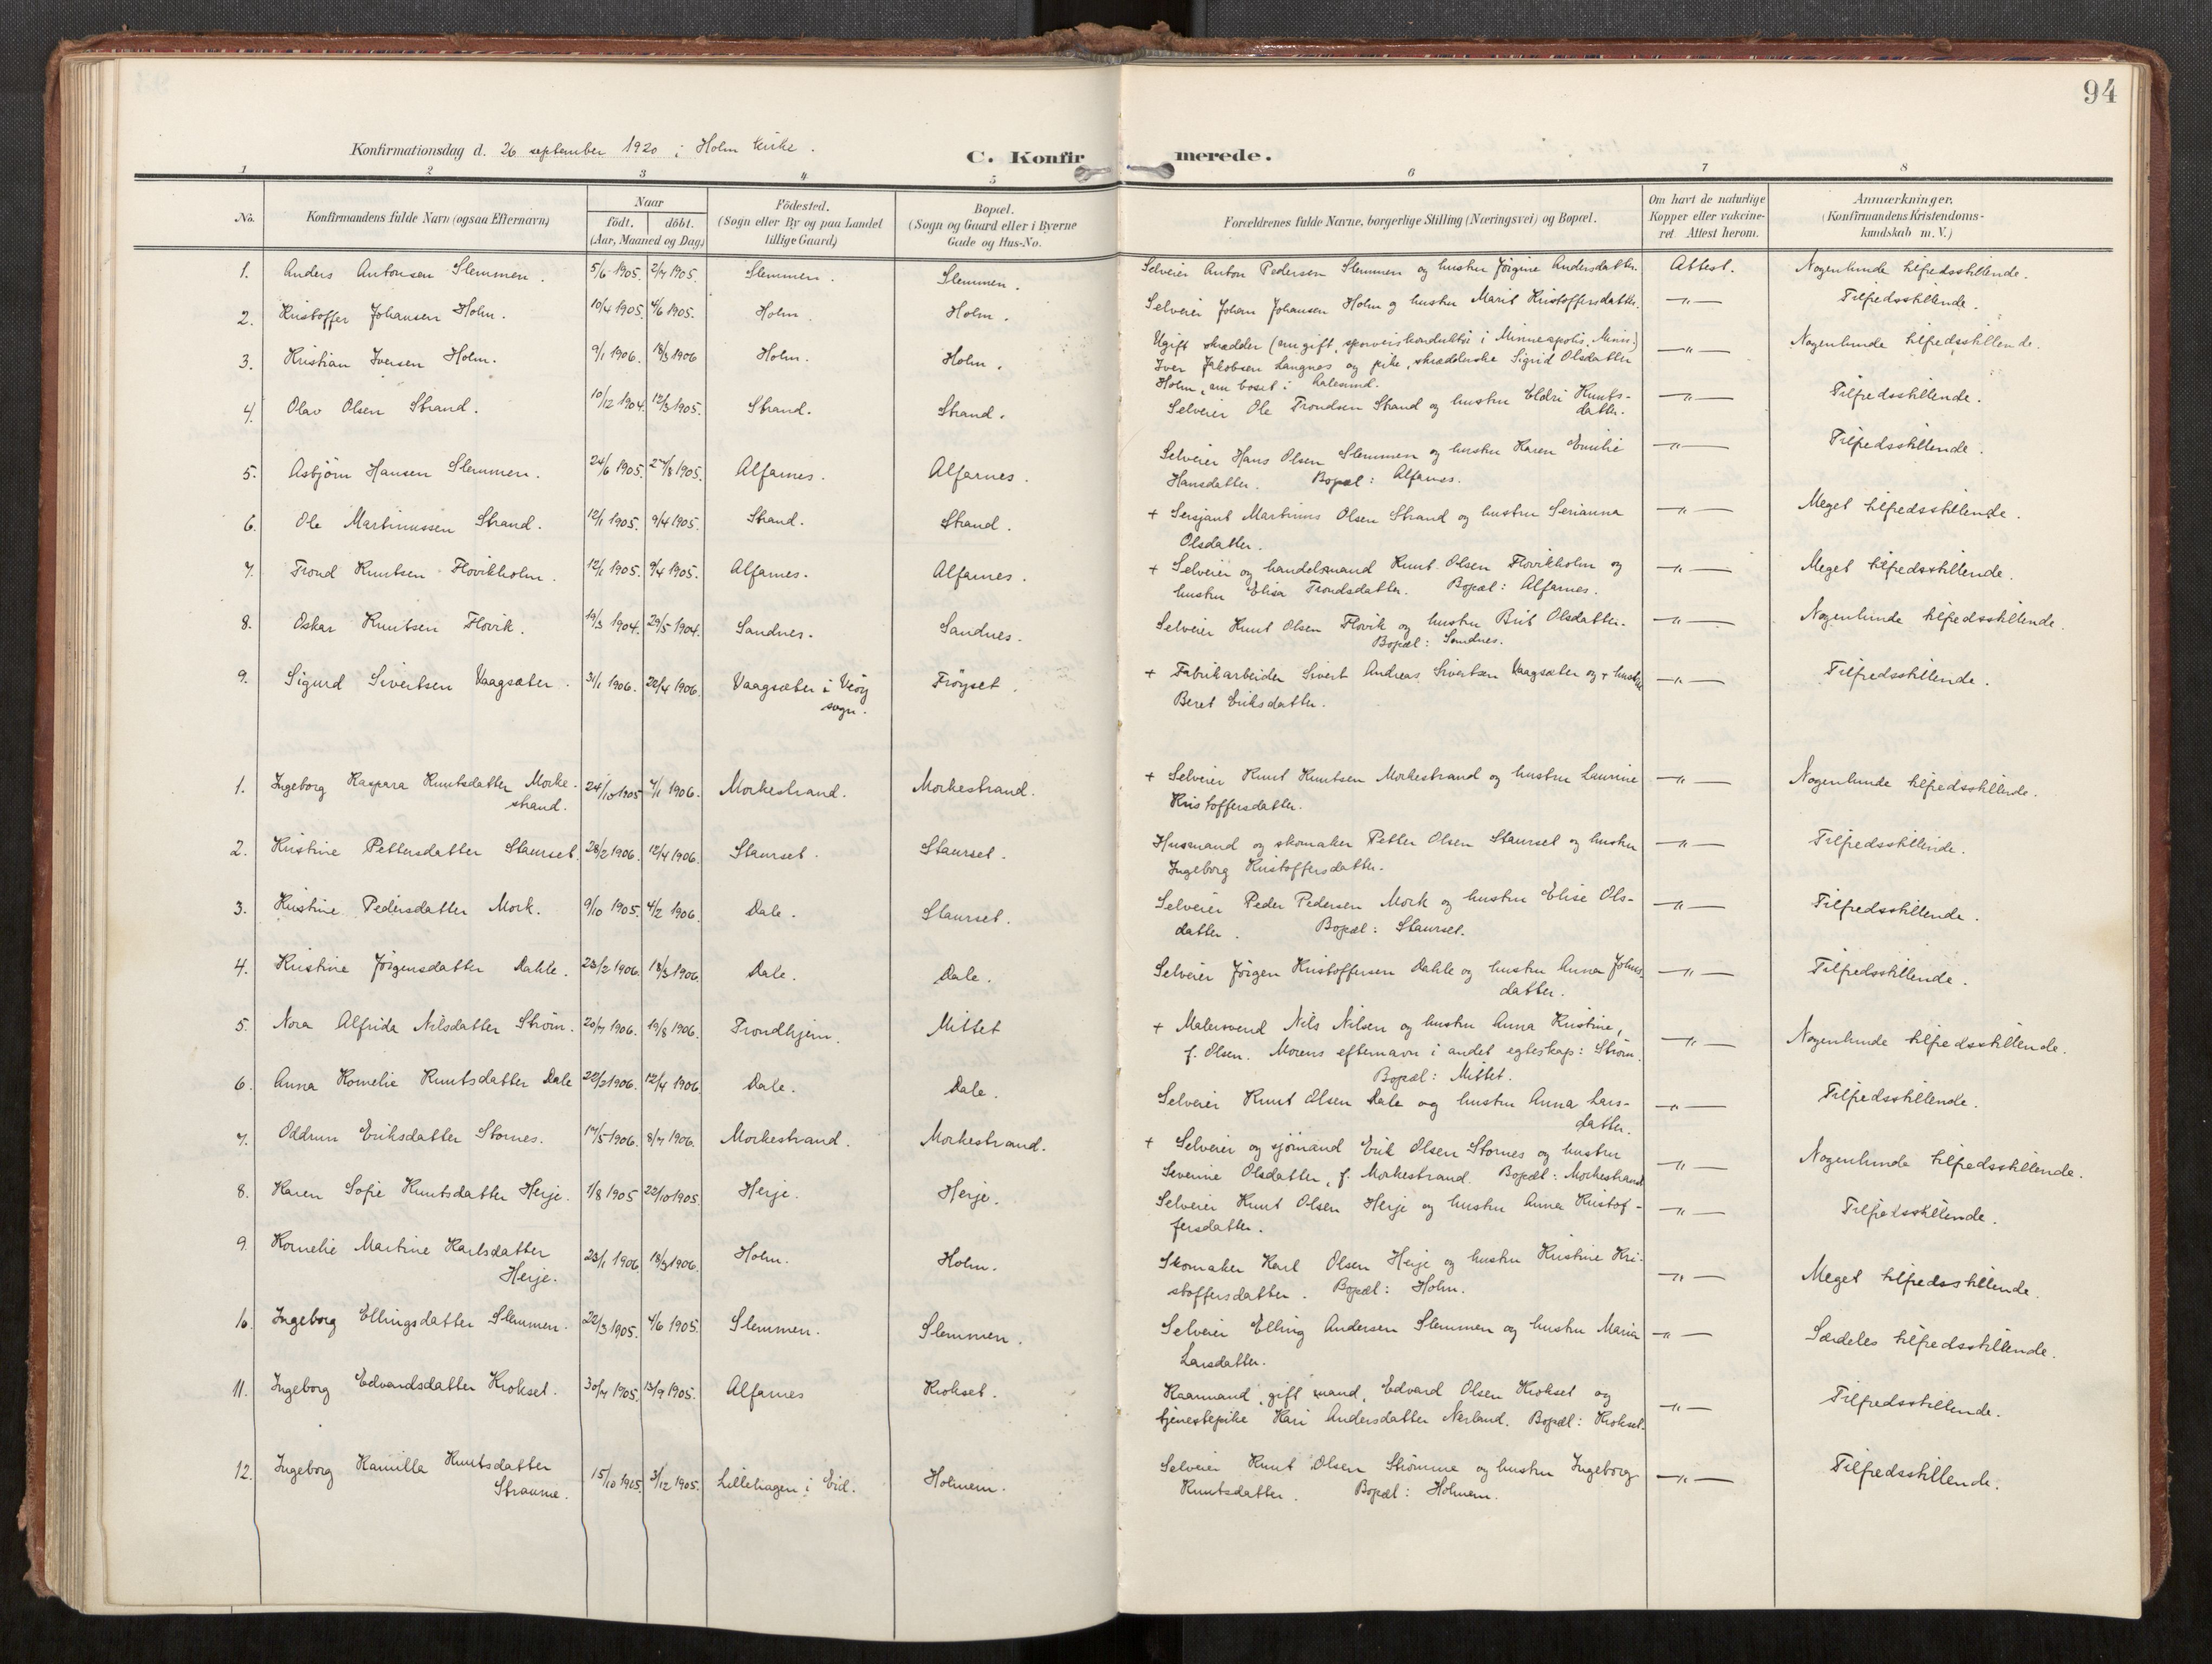 94
Konfirmationsdag d. 26 september 1920 i Holm kirke.
C. Konfirmerede.
1 2 3 4 5 6 7 8
No. Konfirmandens fulde Navn (ogsaa Efternavn) Naar födt. döbt. (Aar, Maaned og Dag) Födested. (Sogn eller By og paa Landet tillige Gaard) Bopæl. (Sogn og Gaard eller i Byerne Gade og Hus-No. Forældrenes fulde Navne, borgerlige Stilling (Næringsvei) og Bopæl. Om havt de naturlige Kopper eller vakcineret. Attest herom. Anmærkninger. (Konfirmandens Kristendomskundskab m. V.)
1. Anders Antonsen Slemmen. 5/6 1905. 2/7 1905. Slemmen. Slemmen. Selveier Anton Pedersen Slemmen og hustru Jörgine Andersdatter. Attest. Nogenlunde tilfredsstillende.
2. Kristoffer Johansen Holm. 10/4 1905. 4/6 1905. Holm. Holm. Selveier Johan Johansen Holm og hustru Marit Kristoffersdatter. —"— Tilfredsstillende.
3. Kristian Iversen Holm. 9/1 1906. 18/3 1906 Holm. Holm. Ugift skrædder (nu gift, sporveiskonduktör i Minneapolis, Minn.) —"— Nogenlunde tilfredsstillende.
Iver Jakobsen Langnes og pike, skrædderske Sigrid Olsdatter
Holm, nu bosat i Aalesund.
4. Olav Olsen Strand. 10/12 1904. 12/3 1905. Strand. Strand. Selveier Ole Trondsen Strand og hustru Eldri Knuts- —"— Tilfredsstillende.
datter.
5. Asbjörn Hansen Slemmen. 24/6 1905. 27/8 1905. Alfarnes. Alfarnes. Selveier Hans Olsen Slemmen og hustru Karen Emilie —"— Tilfredsstillende.
Hansdatter. Bopæl: Alfarnes.
6. Ole Martinussen Strand. 12/1 1905. 9/4 1905. Strand. Strand. + Sersjant Martinus Olsen Strand og hustru Serianna —"— Meget tilfredsstillende.
Olsdatter.
7. Trond Knutsen Flovikholm. 12/1 1905. 9/4 1905. Alfarnes. Alfarnes. + Selveier og handelsmand Knut Olsen Flovikholm og —"— Meget tilfredsstillende.
hustru Elisa Trondsdatter. Bopæl: Alfarnes.
8. Oskar Knutsen Flovik. 19/3 1904. 29/5 1904. Sandnes. Sandnes. Selveier Knut Olsen Flovik og hustru Brit Olsdatter. —"— Nogenlunde tilfredsstillende.
Bopæl: Sandnes.
9. Sigurd Sivertsen Vaagsæter. 31/1 1906. 22/4 1906. Vaagsæter i Veöy Fröyset. + Fabrikarbeider Sivert Andreas Sivertsen Vaagsæter og + hustru —"— Tilfredsstillende.
sogn. Beret Eriksdatter.
1. Ingeborg Kaspara Knutsdatter Morke- 24/10 1905 7/1 1906. Morkestrand. Morkestrand. + Selveier Knut Knutsen Morkestrand og hustru Laurine —"— Nogenlunde tilfredsstillende.
strand. Kristoffersdatter.
2. Kristine Pettersdatter Staurset. 28/2 1906. 12/4 1906. Staurset. Staurset. Husmand og skomaker Petter Olsen Staurset og hustru —"— Tilfredsstillende.
Ingeborg Kristoffersdatter.
3. Kristine Pedersdatter Mork. 9/10 1905. 4/2 1906. Dale. Staurset. Selveier Peder Pedersen Mork og hustru Elise Ols- —"— Tilfredsstillende.
datter. Bopæl: Staurset.
4. Kristine Jörgensdatter Dahle. 23/2 1906. 18/3 1906 Dale. Dale. Selveier Jörgen Kristoffersen Dahle og hustru Anna Johns- —"— Tilfredsstillende.
datter.
5. Nora Alfrida Nilsdatter Ström. 20/7 1906. 19/8 1906. Trondhjem. Mittet + Malersvend Nils Nilsen og hustru Anna Kristine, —"— Nogenlunde tilfredsstillende.
f. Olsen. Morens efternavn i andet egteskap: Ström.
Bopæl: Mittet.
6. Anna Kornelie Knutsdatter Dale 22/2 1906. 12/4 1906 Dale. Dale. Selveier Knut Olsen Dale og hustru Anna Lars- —"— Tilfredsstillende.
datter.
7. Oddrun Eriksdatter Stornes. 17/5 1906. 8/7 1906. Morkestrand. Morkestrand. + Selveier og sjömand Erik Olsen Stornes og hustru —"— Nogenlunde tilfredsstillende.
Severine Olsdatter, f. Morkestrand. Bopæl: Morkestrand
8. Karen Sofie Knutsdatter Herje. 1/8 1905 22/10 1905 Herje. Herje. Selveier Knut Olsen Herje og hustru Anna Kristof- —"— Tilfredsstillende.
fersdatter.
9. Kornelie Martine Karlsdatter 23/1 1906 18/3 1906. Holm. Holm. Skomaker Karl Olsen Herje og hustru Kristine Kri- —"— Meget tilfredsstillende.
Herje. stoffersdatter. Bopæl: Holm.
10. Ingeborg Ellingsdatter Slemmen. 22/3 1905. 4/6 1905. Slemmen. Slemmen. Selveier Elling Andersen Slemmen og hustru Maria —"— Særdeles tilfredsstillende.
Larsdatter.
11. Ingeborg Edvardsdatter Krokset. 30/7 1905. 13/9 1905. Alfarnes Krokset. Kaarmand, gift mand, Edvard Olsen Krokset og —"— Tilfredsstillende.
tjenestepike Kari Andersdatter Nerland. Bopæl: Krokset.
12. Ingeborg Kamilla Knutsdatter 15/10 1905. 3/12 1905. Lillehagen i Eid. Holmem. Selveier Knut Olsen Strömme og hustru Ingeborg —"— Tilfredsstillende.
Straume. Knutsdatter. Bopæl: Holmem.